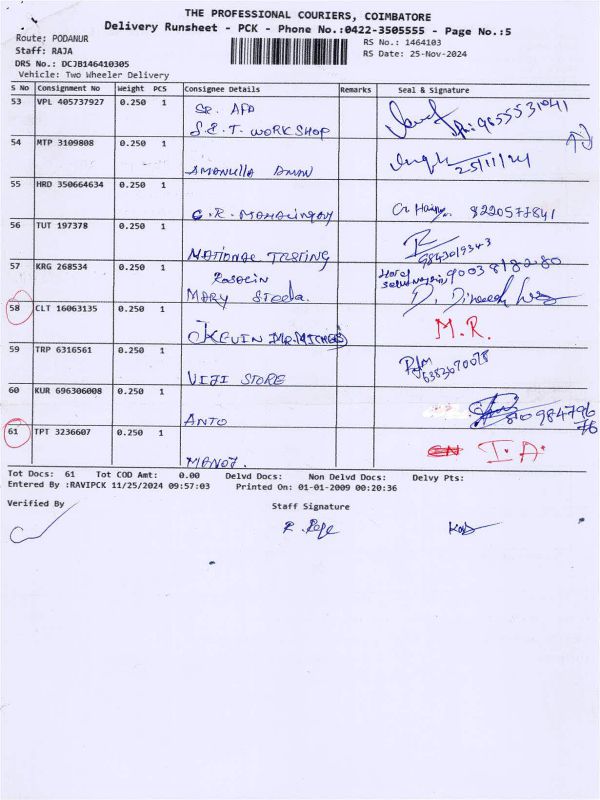 THE PROFESSIONAL COURIERS, COIMBATORE
Delivery Runsheet - PCK - Phone No.:0422-3505555 - Page No.:5
Route: PODANUR
RS No.: 1464103
Staff: RAJA
RS Date: 25-Nov-2024
DRS No.: DCJB146410305
Vehicle: Two Wheeler Delivery
S No Consignment No Weight PCS Consignee Details Remarks Seal & Signature
53 VPL 405737927 0.250 1 SR. AFO
S.E.T. WORKSHOP 9855531041
54 MTP 3109808 0.250 1
AMANULLA 25/11/24
55 HRD 350664634 0.250 1
G.R. 8220577841
56 TUT 197378 0.250 1
NATIONAL TESTING 9843019343
57 KRG 268534 0.250 1
MARY 9003818280
58 CLT 16063135 0.250 1
KEVIN M.R.
59 TRP 6316561 0.250 1
VIJI STORE 6383670078
60 KUR 696306008 0.250 1
ANTO 984796
76
61 TPT 3236607 0.250 1
MANOJ. I.A.
Tot Docs: 61 Tot COD Amt: 0.00 Delvd Docs: Non Delvd Docs: Delvy Pts:
Entered By :RAVIPCK 11/25/2024 09:57:03 Printed On: 01-01-2009 00:20:36
Verified By
Staff Signature